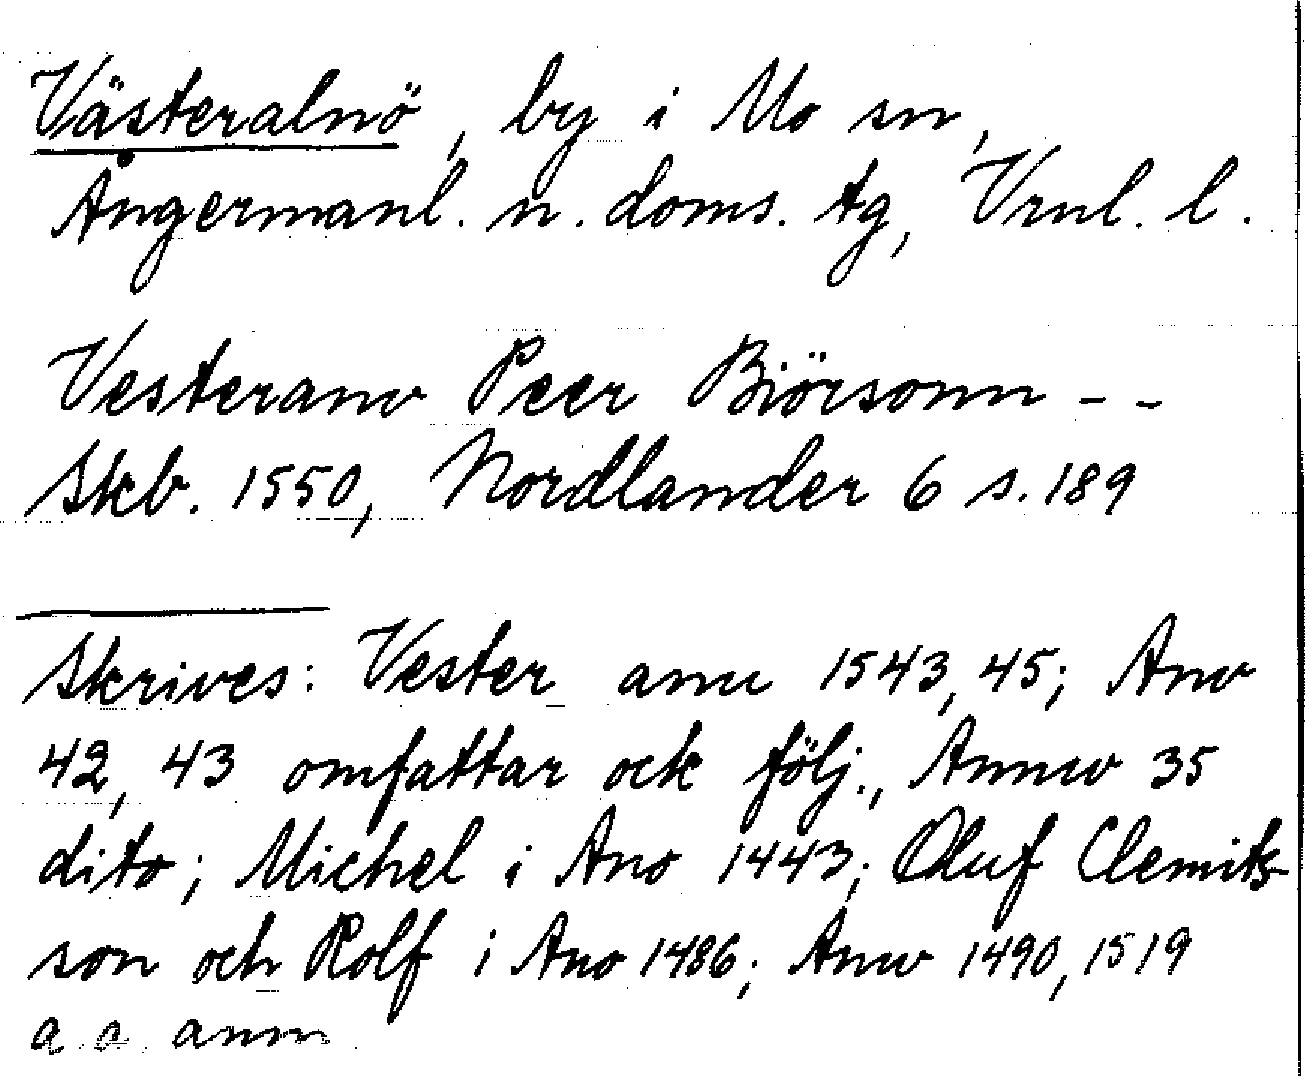 Västeralnö, by i Mo sn,
Ångermanl. n. doms. tg, Vrnl. l.
Vesteranv Peer Biörsonn - -
Skb. 1550, Nordlander 6 s. 189
Skrives: Vester anu 1543, 45; Anv
42, 43 omfattar ock följ., Annw 35
dito; Michel i Ano 1443; Oluf Clemits
son och Rolf i Ano 1486; Anw 1490, 1519
a a anm